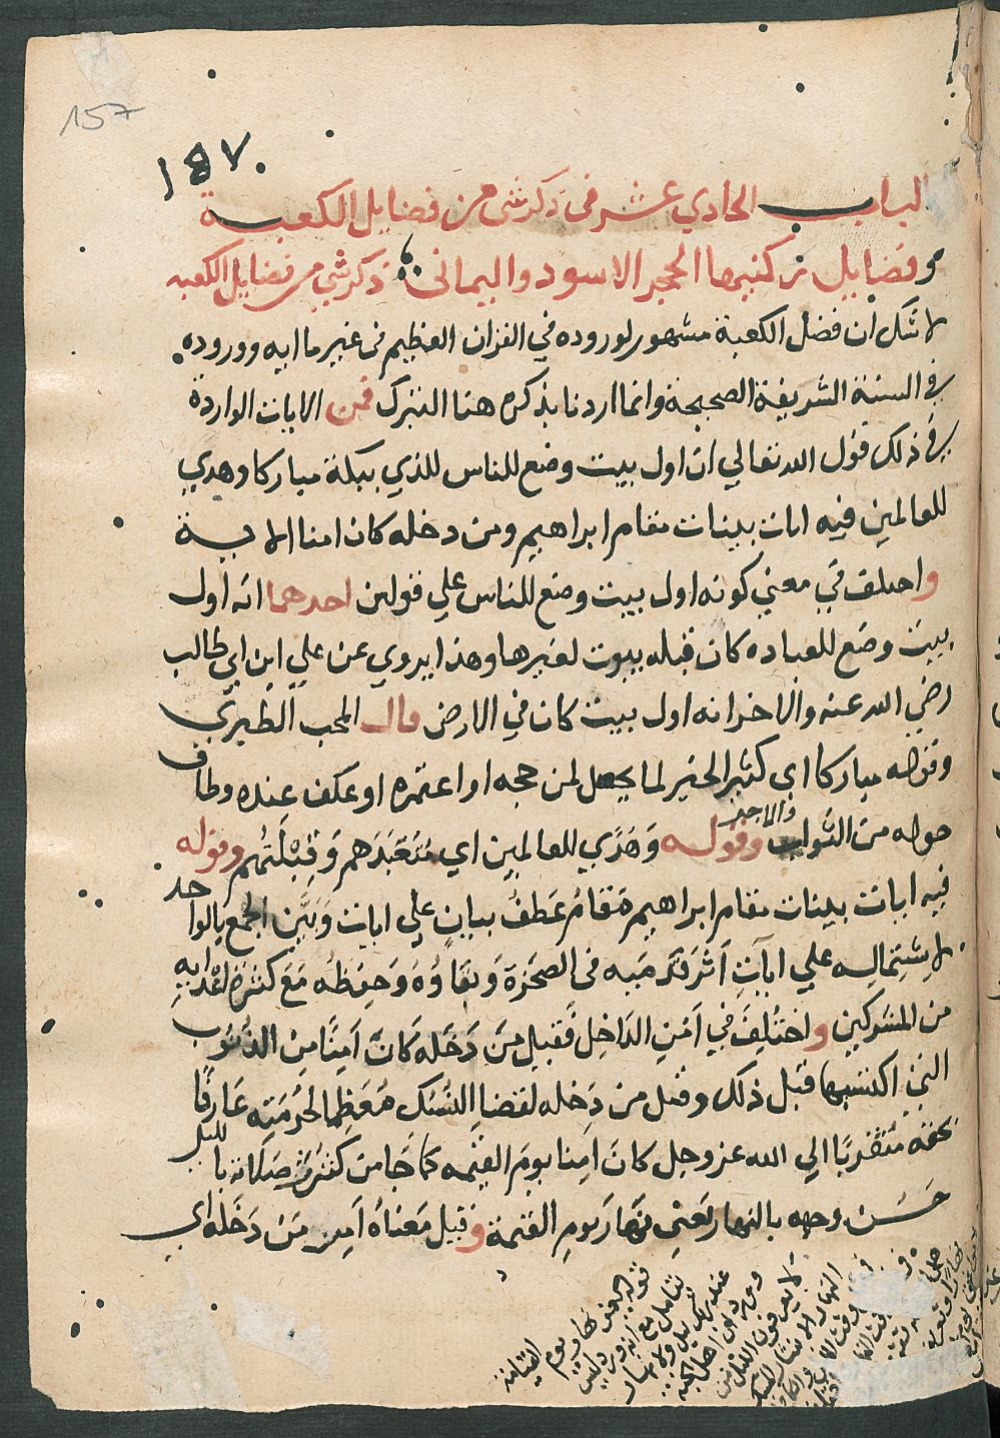 157
١٤٧
الباب الحادي عشر في ذكر شي من فضايل الكعبة
وفضايل ركنيها الحجر الاسود واليماني ذكر شي من فضايل الكعبه
لا شك ان فضل الكعبة مشهور لوروده في القران العظيم في غير ما ايه ووروده
في السنة الشريفة الصحيحة وانما اردنا بذكره هنا التبرك فمن الايات الواردة
في ذلك قول الله تعالي ان اول بيت وضع للناس للذي ببكة مباركا وهدي
للعالمين فيه ايات بينات مقام ابراهيم ومن دخله كان امنا الاية
واختلف في معني كونه اول بيت وضع للناس علي قولين احدهما انه اول
بيت وضع للعباده كان قبله بيوت لغيرها وهذا يروي عن علي ابن ابي طالب
رضي الله عنه والاخر انه اول بيت كان في الارض قال المحب الطبري
وقوله مباركا اي كثير الخير لما يحصل لمن حجه او اعتمره او عكف عنده وطاف
حوله من الثواب والاجر وقوله وَهدَي للعالمين اي مُتَعَبَدَهم وَقِبْلَتُهم وقوله
فيه ايات بينات مقام ابراهيم مَقامُ عَطفُ بيانٍ علي ايات وَبَيَّن الجمع بالواحد
لاِشتِمالِه علي اياَتٍ اَثَر قدَميه في الصخَرَة وَبقاوُهُ وَحِفظُه مَعَ كثرة اعْدايهِ
من المشركين واختُلِفَ في اَمْنِ الداخِل فَقيل مَن دَخَله كَانَ آمِنًا مِن الذُنُوب
التي اكتسبها قبْل ذلك وقيل من دَخله لقضا النُسُك مُعَظِما لحُرمَتِه عَارفًا
بحقه مُتقرّبًا الي الله عز وجل كانَ امِنا يومَ القيمه كمَا جَا من كثُرتْ صَلاته بالليل
حَسُن وجهه بالنهار يَعني نَهارَ يومِ القيمة وقيل مَعناهُ اَمِن مَنْ دَخَله اي